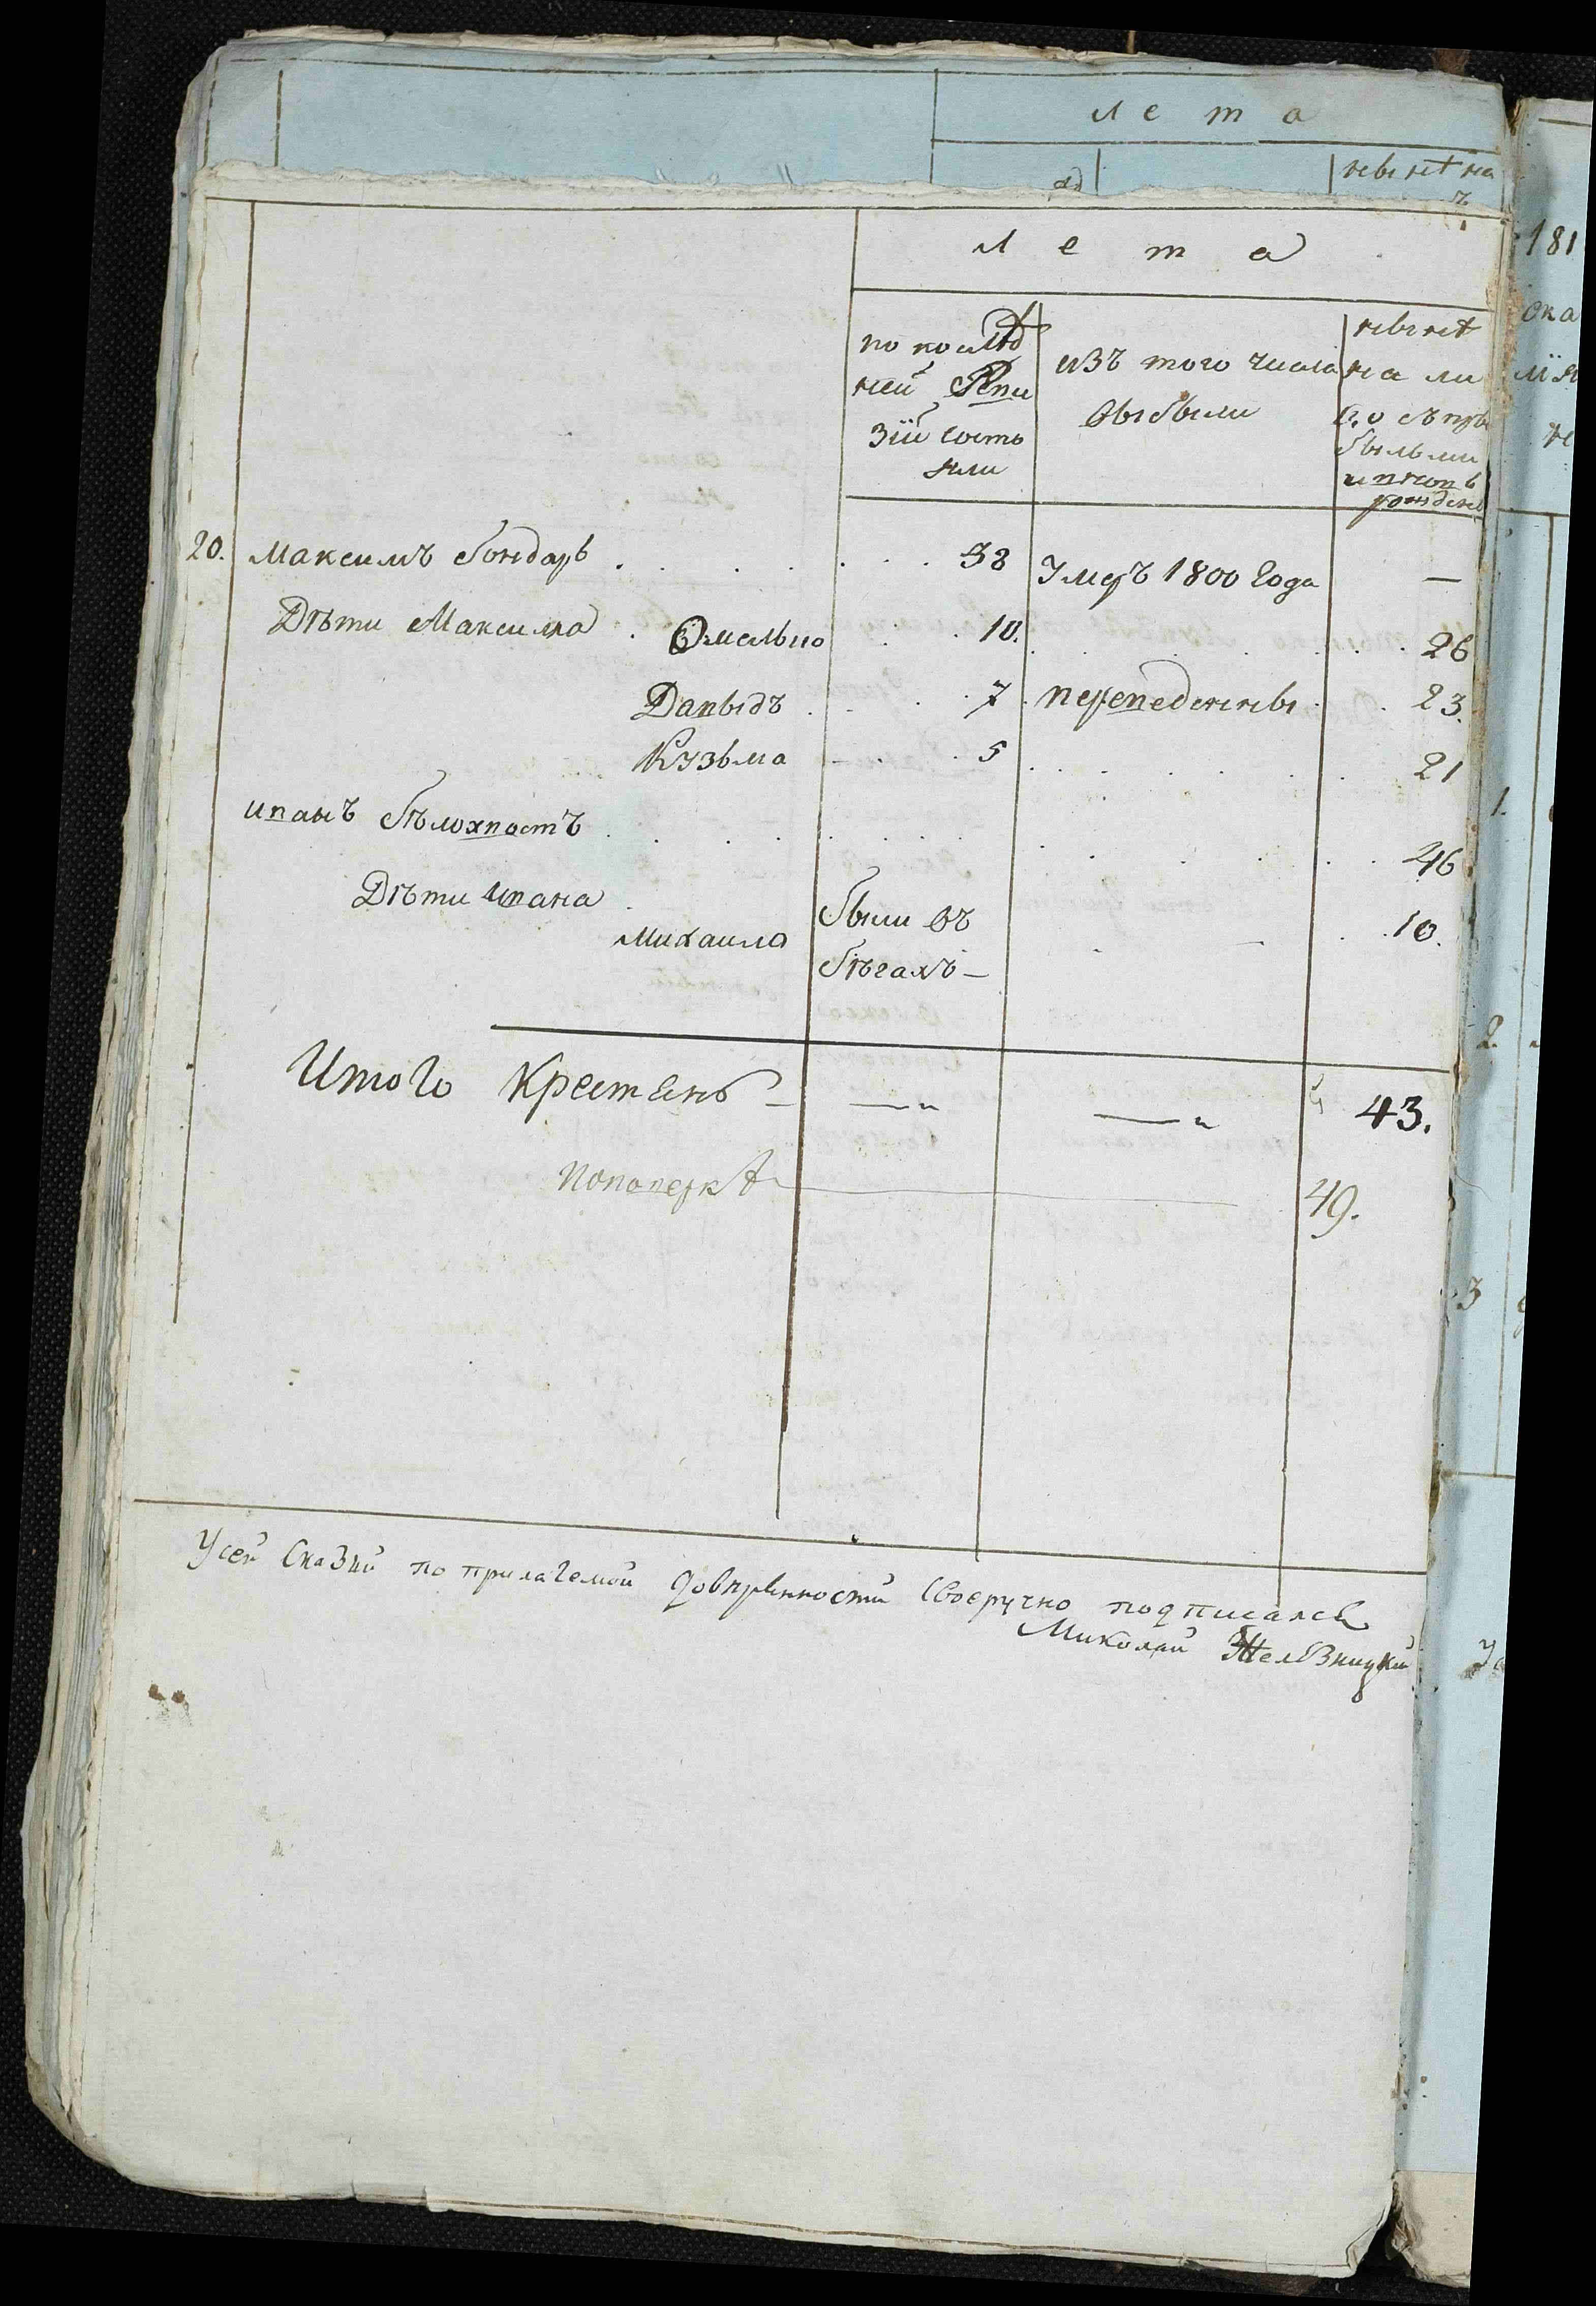 лета
ныне на
лета
по послѣд
ней Реви
зіи состо
яли
изъ того числа
выбыли
ныне
на ли
цо съ прі
былыми
и внов
рожден
20. Максимъ бондарь . . . . . . 38 Умеръ 1800 года —
Дѣти Максима . Омелько . . 10. . . . . . . 26
Давыдъ . . . 7 . переведенны . . 23.
Кузьма . . . 5 . . . . . . 21
иванъ бѣлохвостъ . . . . . . . . . . . . 46
Дѣти ивана .
Михаило были въ . . 10.
бѣгахъ —
Итого крестянъ — — " — " 43.
поповерке 49.
Усей сказки по прилагемой довѣренности своеручно подписалсе
Миколай Желѣзницкий
181
ска
1.
2.
3